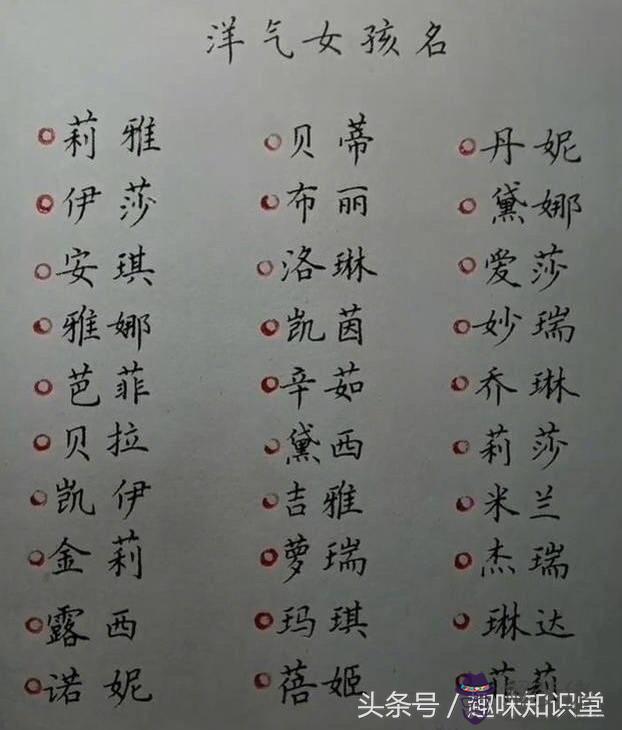 洋气女孩名
莉雅 贝蒂 丹妮
伊莎 布丽 黛娜
安琪 洛琳 爱莎
雅娜 凯茵 妙瑞
芭菲 辛茹 乔琳
贝拉 黛西 莉莎
凯伊 吉雅 米兰
金莉 萝瑞 杰瑞
露西 玛琪 琳达
诺妮 蓓姬 菲莉
头条号／趣味知识堂